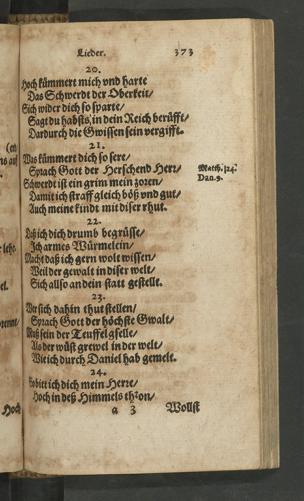 Lieder. 373
20.
Hoch kümmert mich vnd harte
Das Schwerdt der Oberkeit/
Sich wider dich so sparte/
Sagt du habsts/ in dein Reich berüfft/
Dardurch die Gwissen sein vergifft.
21.
Was kümmert dich so sere/
Sprach Gott der Herschend Herr/
Schwerdt ist ein grim mein zoren/
Damit ich straff gleich böß vnd gut/
Auch meine kindt mit diser rhut.
Matth. 24.
Dan. 9.
22.
Laß ich dich drumb begrüsse/
Ich armes Würmelein/
Macht daß ich gern wolt wissen/
Weil der gewalt in diser welt/
Sich allso an dein statt gestellt.
23.
Wer sich dahin thut stellen/
Sprach Gott der höchste Gwalt/
Muß sein der Teuffel gselle/
Als der wüst grewel in der welt/
Wie ich durch Daniel hab gemelt.
24.
So bitt ich dich mein Herre/
Hoch in deß Himmels thron/
a 3 Wollst